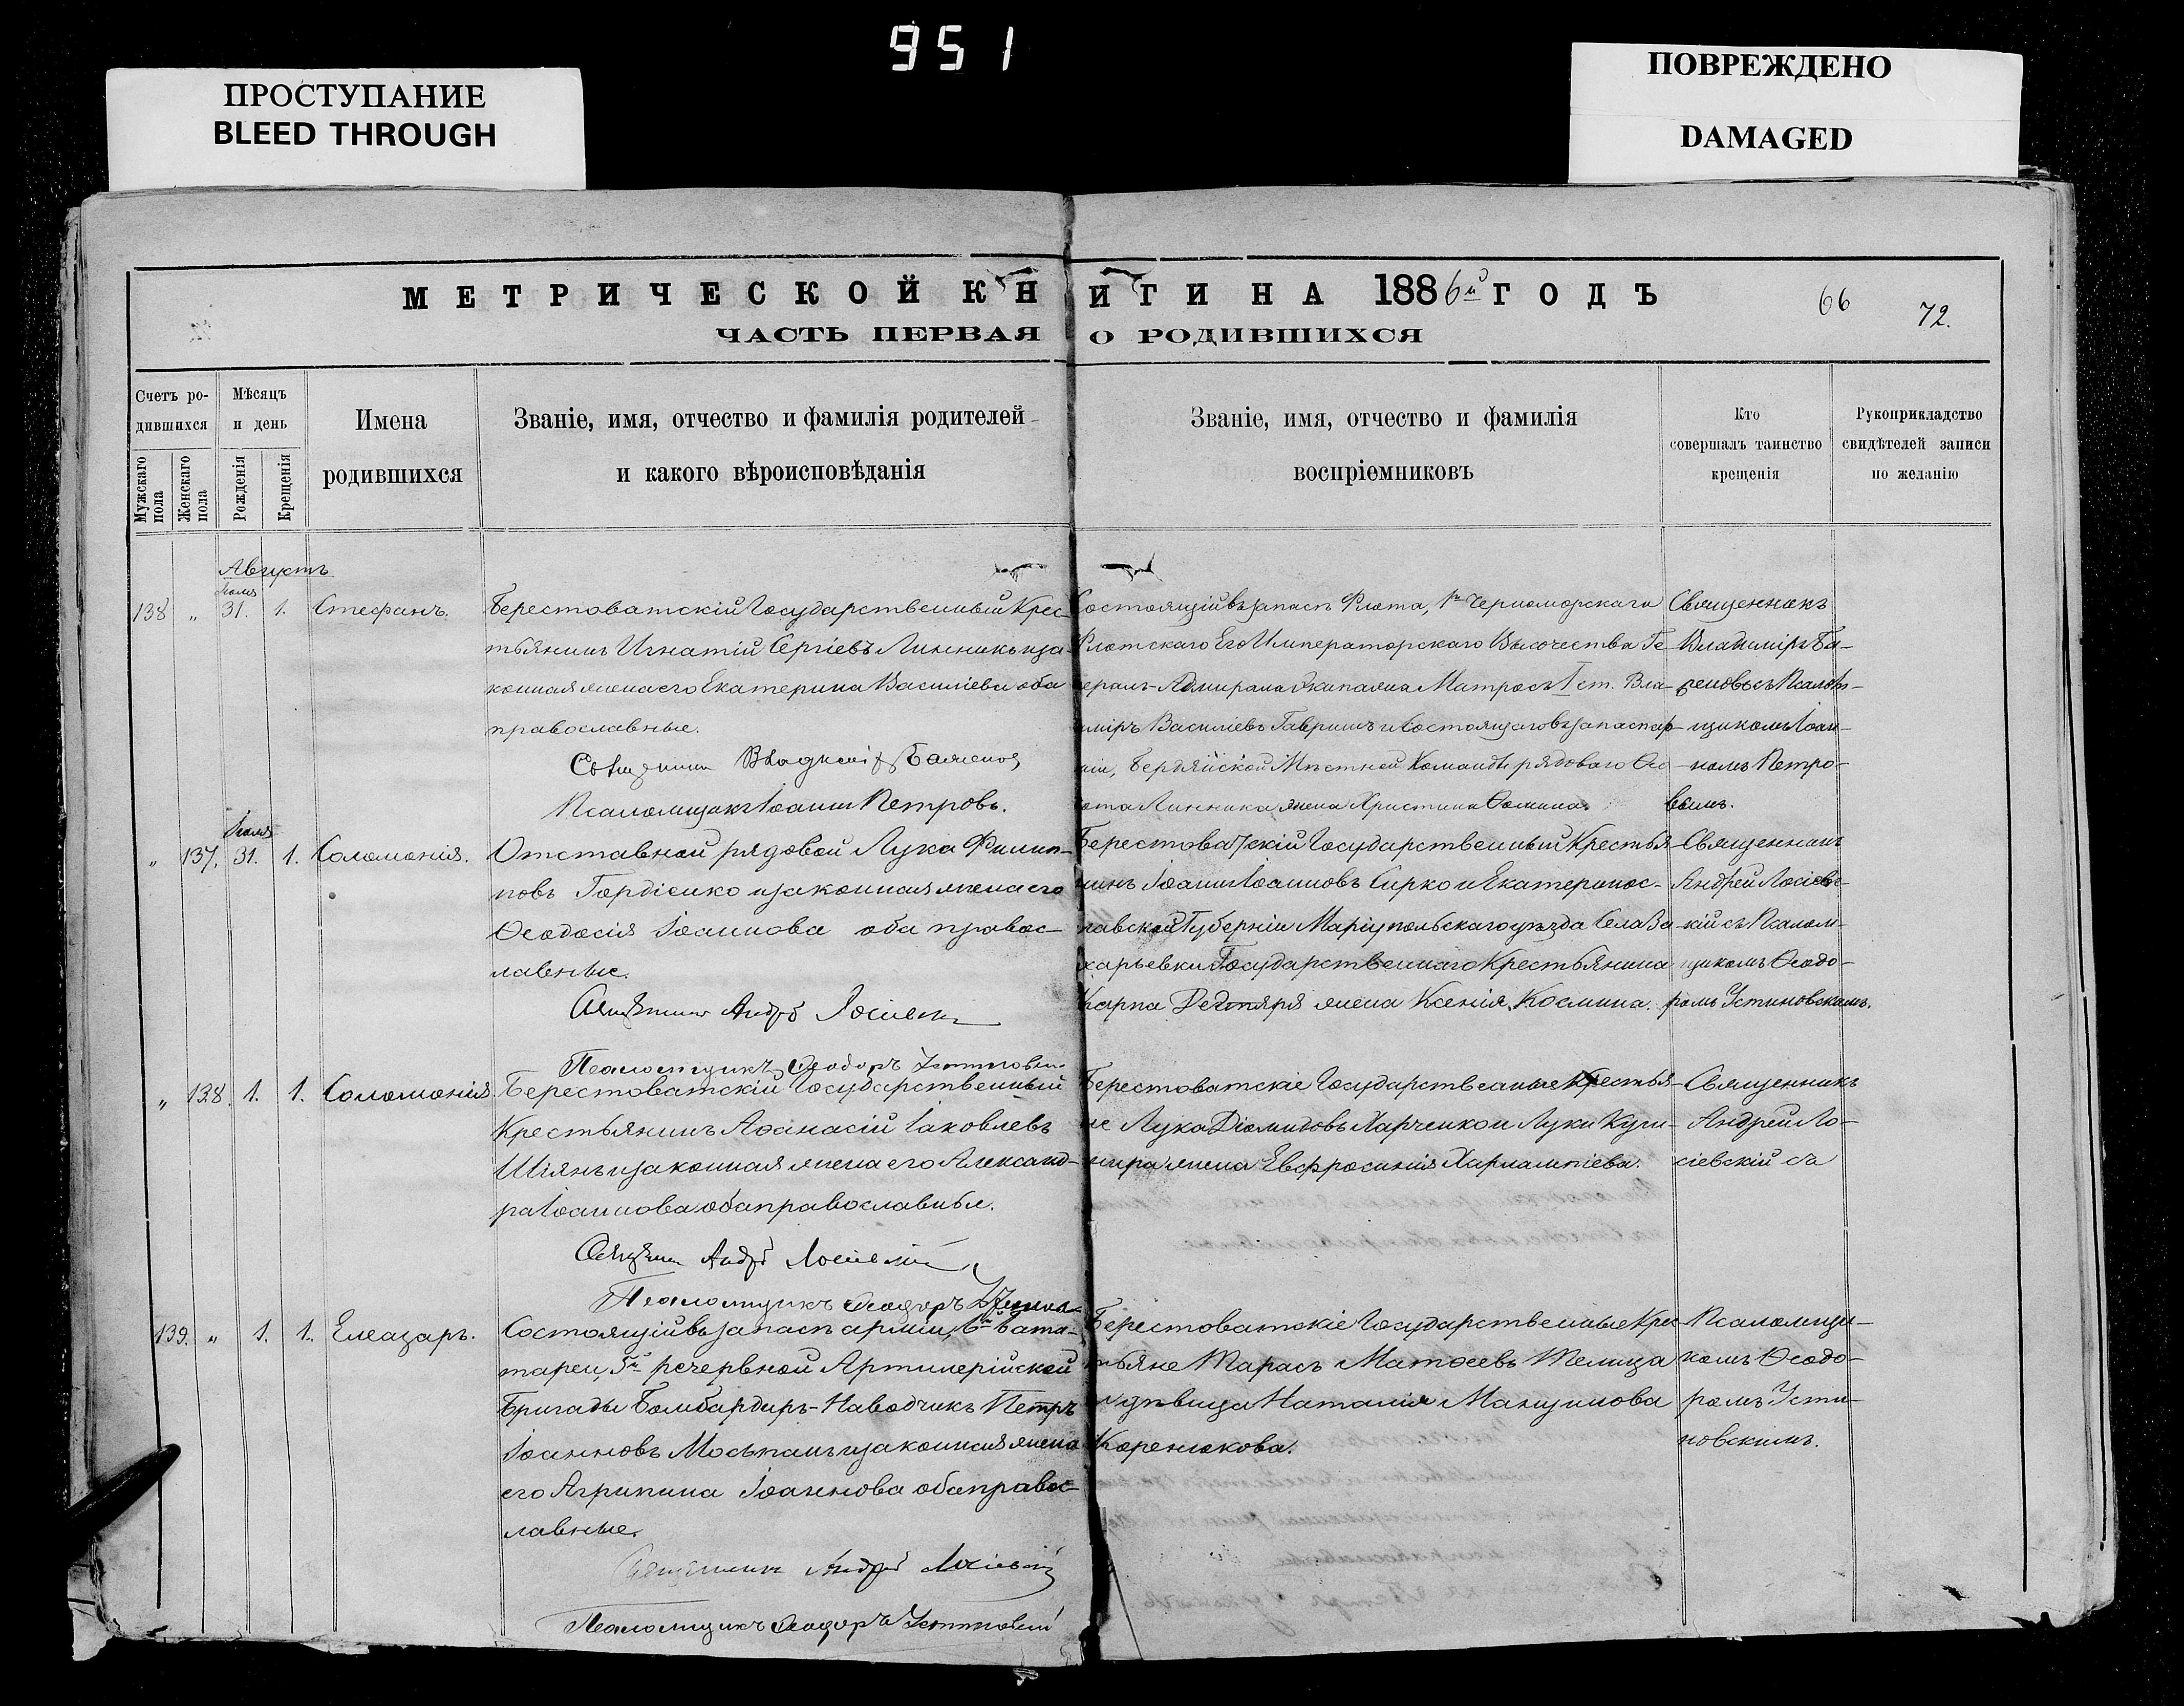 951
ПРОСТУПАНИЕ
BLEED THROUGH
ПОВРЕЖДЕНО
DAMAGED
МЕТРИЧЕСКОЙ КНИГИ НА 1886й ГОДЪ
66
72.
ЧАСТЬ ПЕРВАЯ О РОДИВШИХСЯ
Счетъ ро-
дившихся
Мужскаго пола
Женскаго пола
Мѣсяцъ
и день
Рожденія
Крещенія
Имена
родившихся
Званіе, имя, отчество и фамилія родителей
и какого вѣроисповѣданія
Званіе, имя, отчество и фамилія
воспріемниковъ
Кто
совершалъ таинство
крещенія
Рукоприкладство
свидѣтелей записи
по желанію
Августъ
Іюля
138 „ 31. 1. Стефанъ.
Берестоватскій Государственный Крес-
тьянинъ Игнатій Сергіевъ Линникъ и за-
конная жена его Екатерина Василіева оба
православные.
Священник Владиміръ Баженов
Псаломщикъ Іоаннъ Петровъ.
Состоящій въ запасѣ Флота, Черноморскаго
Флотскаго Его Императорскаго Высочества Ге-
нералъ-Адмирала Экипажа Матросъ I ст. Вла-
диміръ Василіевъ Гавришъ и Состоящаго въ запасѣ ар-
міи, Бердянской Мѣстной Команды рядоваго
Линника жена Христина Фомина.
Священникъ
Владиміръ Ба-
женовъ съ Псалом-
щикомъ Іоан-
номъ Петро-
вымъ.
Іюля
„ 137. 31. 1. Соломонія.
Отставной рядовой Лука Филип-
повъ Гордіенко и законная жена его
Ѳеодосія Іоаннова оба правос-
лавные.
Священник Андрей Лосіевскій
Псаломщикъ Ѳеодоръ Устиновскій
Берестоватскій Государственный Крестья-
нинъ Іоаннъ Іоанновъ Сирко и Екатеринос-
лавской Губерніи Маріупольскаго уѣзда Села За-
харьевки Государственнаго Крестьянина
Карпа Дегтяря жена Ксенія Космина.
Священникъ
Андрей Лосіевс-
кій съ Псалом-
щикомъ Ѳеодо-
ромъ Устиновскимъ.
„ 138. 1. 1. Соломонія.
Берестоватскій Государственный
Крестьянинъ Аѳанасій Іаковлевъ
Шіянъ и законная жена его Александ-
ра Іоаннова оба православные.
Священник Андрей Лосіевскій
Псаломщикъ Ѳеодоръ
Берестоватскіе Государственные Крестья-
не Лука Діомидовъ Харченко и Луки
жена Евфросинія Харлампіева.
Священникъ
Андрей Ло-
сіевскій съ
139. „ 1. 1. Елеазаръ.
Состоящій въ запасѣ арміи, 6й бата-
тареи, 5й резервной Артилерійской
Бригады Бомбардиръ-Наводчикъ Петръ
Іоанновъ Моськанъ и законная жена
его Агрипина Іоаннова оба правос-
лавные.
Священникъ Андрей Лосіевскій
Псаломщикъ Ѳеодоръ Устиновскій
Берестоватскіе Государственные Крес-
тьяне Тарасъ Матѳеевъ Телица
и дѣвица Наталія Мануилова
Коренюкова.
Псаломщи-
комъ Ѳеодо-
ромъ Усти-
новскимъ.